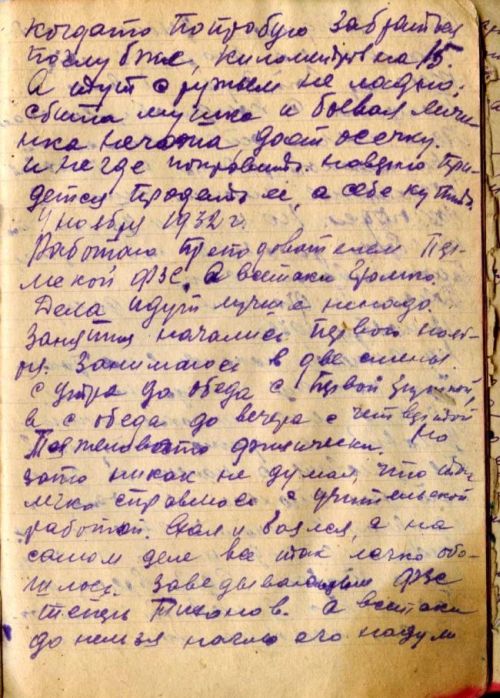 когдато попробую забраться
поглубже, километров на 15.
А тут с ружьем не ладно:
сбита мушка и боевая личи-
нка начата дает осечку.
и негде поправить. наверно при-
дется продать ее, а себе купить.
4 ноября 1932 г.
Работаю преподователем Пер-
мской ФЗС. А всетаки громко.
Дела идут лучше ненадо.
Занятия начались первого нояб-
ря. Занимаюсь в две смены
с утра до обеда с первой группой,
а с обеда до вечера с четвертой
Тяжеловато физически. Но
зато никак не думал, что так
легко справлюсь с учительской
работой. Шел и боялся, а на
самом деле все так легко обо-
шлось. Заведывающим ФЗС
теперь Тихонов. А всетаки
до нельзя нагло его надули